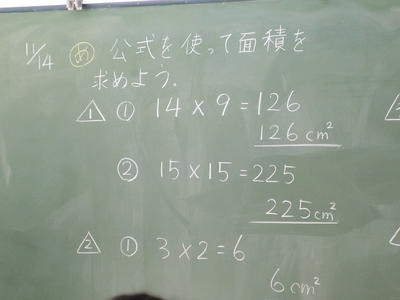 11/14 め 公式を使って面積を
求めよう.
1 ① 14×9=126
126cm²
② 15×15=225
225cm²
2 ① 3×2=6
6cm²